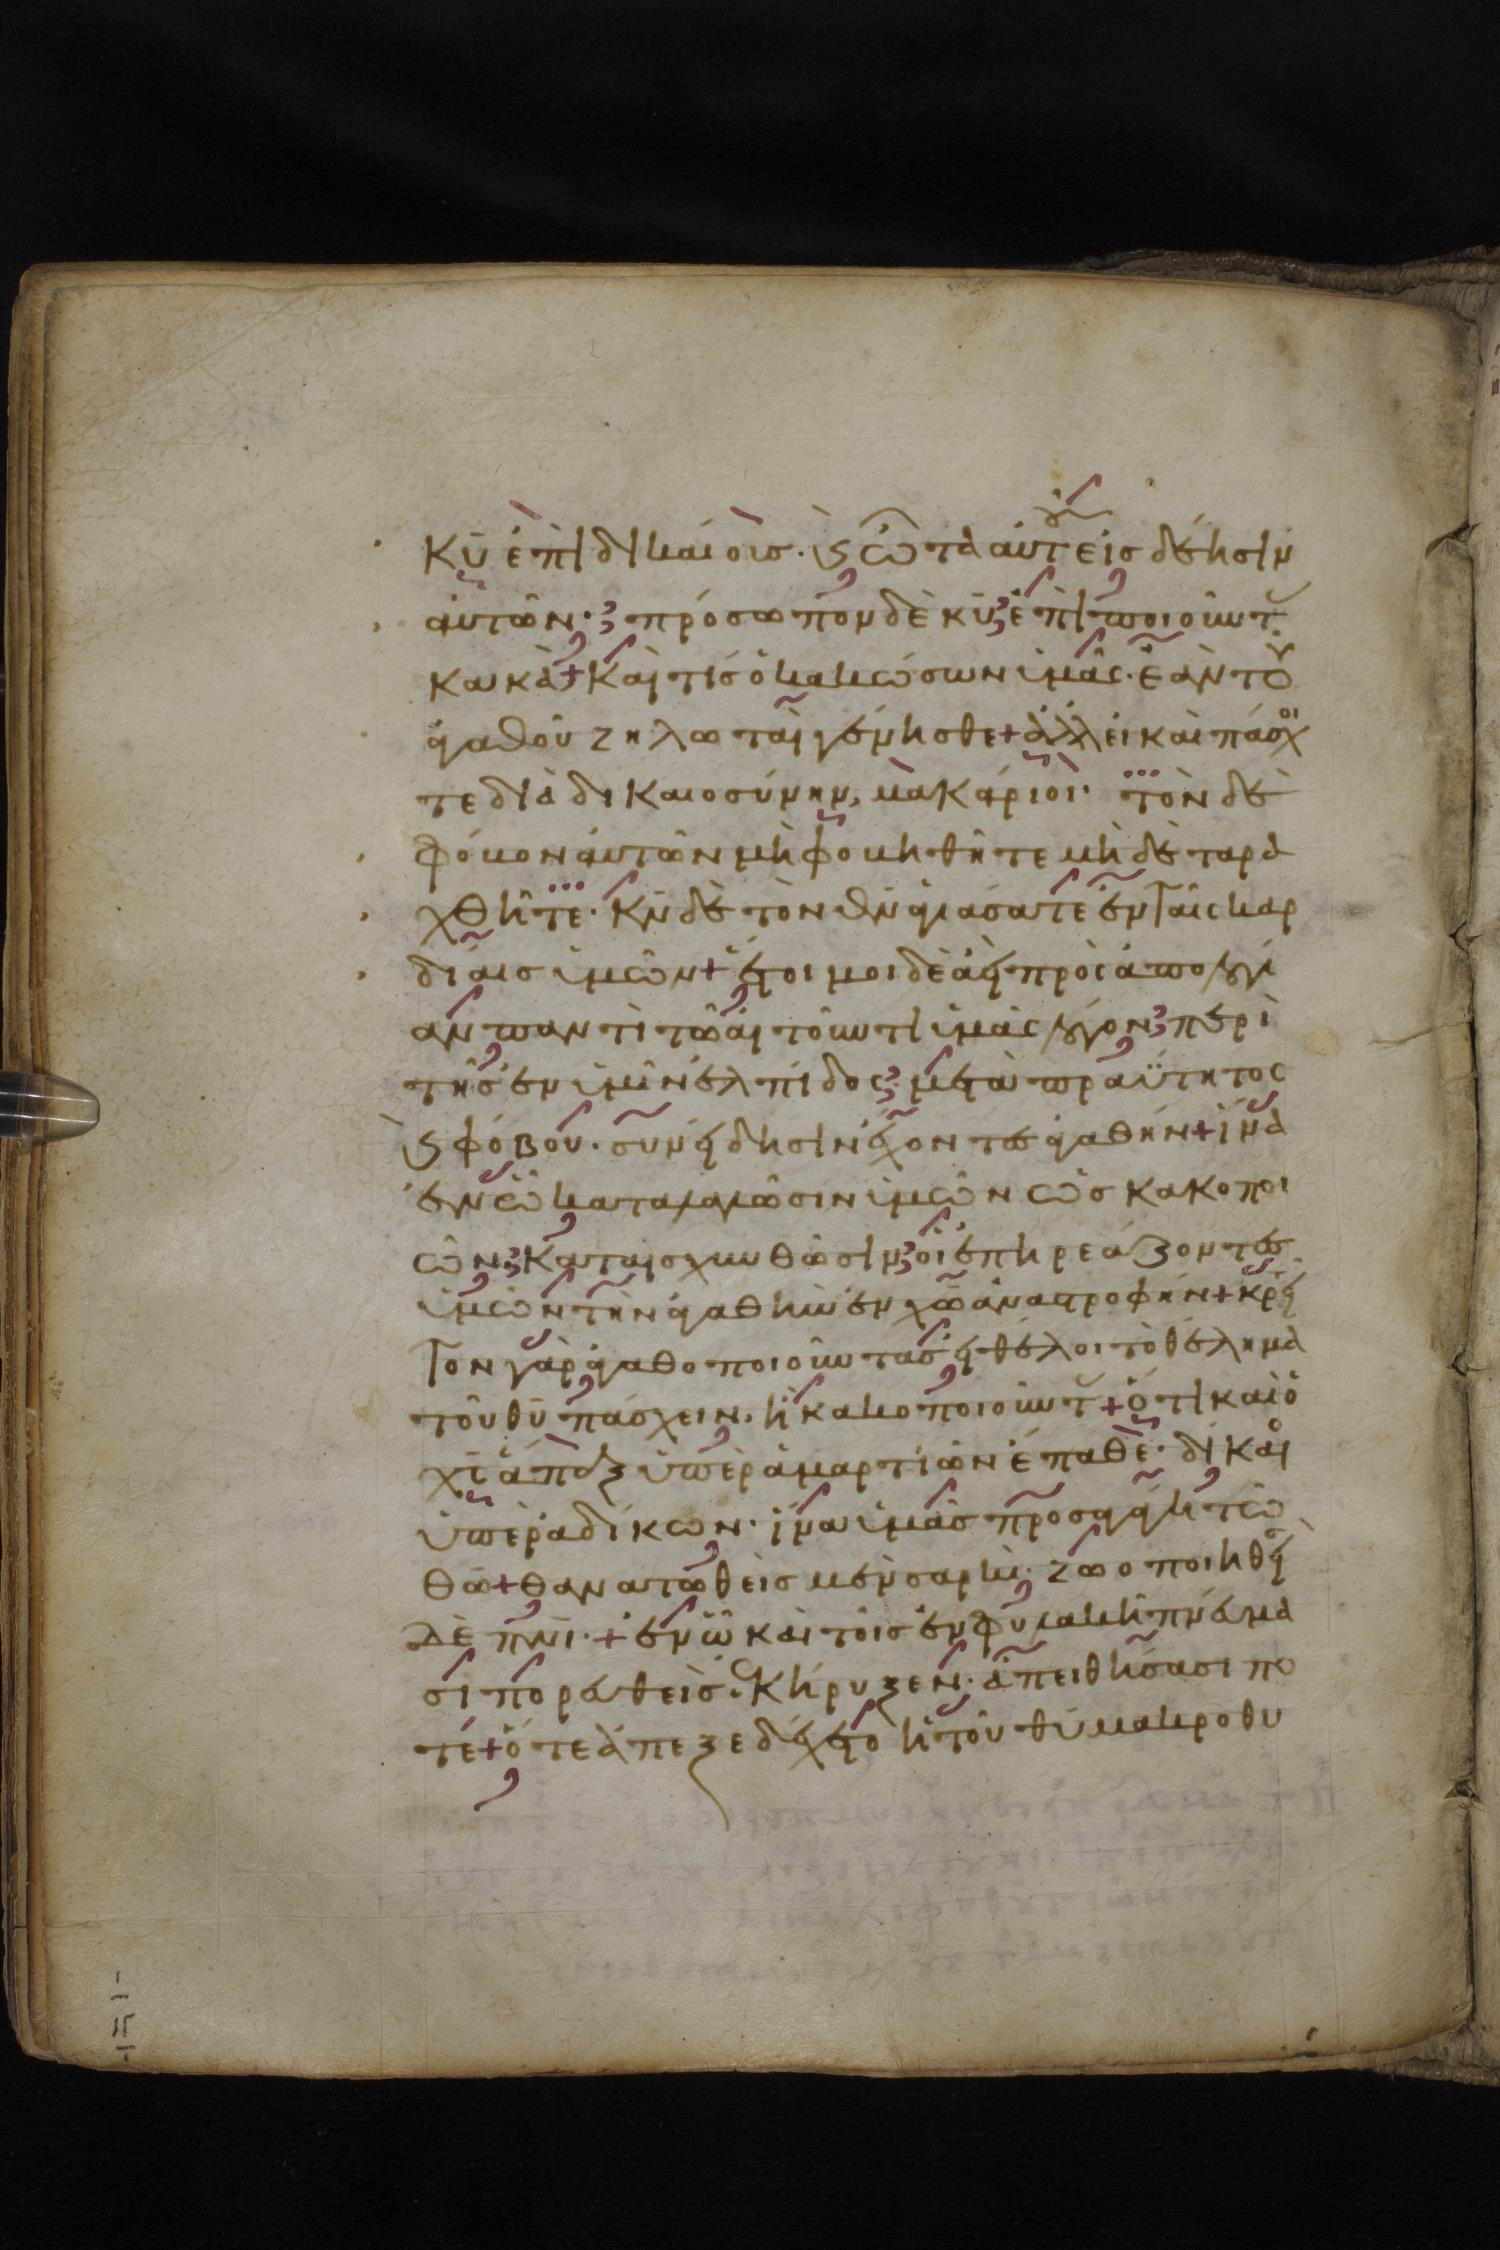 κυ ἐπὶ δικαίοις. ϗ ὦτα αὐτ εἰς δέησιν
αὐτῶν· πρόσωπον δὲ κυ ἐπὶ ποιοῦντ
κακά + καὶ τίς ὁ κακώσων ὑμᾶς. ἐὰν τοῦ
ἀγαθοῦ ζηλωταὶ γένησθε + ἀλλ εἰ καὶ πάσχοι
τε διὰ δικαιοσύνην, μακάριοι· τὸν δὲ
φόβον αὐτῶν μὴ φοβηθῆτε μὴ δὲ ταρα
χθῆτε· κν δὲ τὸν θν ἁγιάσατε ἐν ταῖς καρ
δίαις ὑμῶν + ἕτοιμοι δὲ ἀεὶ πρὸς ἀπολογί
αν παντὶ τῶ αἰτοῦντι ὑμᾶς λόγον περὶ
τῆς ἐν ὑμῖν ἐλπίδος· μετὰ πραΰτητος
ϗ φόβου. συνείδησιν ἔχοντες ἀγαθήν + ἵνα
ἐν ὧ καταλαλῶσιν ὑμῶν ὡς κακοποι
ῶν· καταισχυνθῶσιν οἱ ἐπηρεάζοντες
ὑμῶν τὴν ἀγαθὴν ἐν χω ἀναστροφήν + κρεῖ
τον γὰρ ἀγαθοποιοῦντας εἰ θέλοι τὸ θέλημα
τοῦ θυ πάσχειν, ἢ κακοποιοῦντ + ὅτι καὶ ὁ
χς ἅπαξ ὑπὲρ ἁμαρτιῶν ἔπαθε· δίκαιο
ὑπὲρ ἀδίκων· ἵνα ὑμᾶς προσαγάγη τῶ
θω + θανατωθεὶς μὲν σαρκί· ζωοποιηθεὶς
δὲ πνι· + ἐν ὧ καὶ τοῖς ἐν φυλακῆ πνεύμα
σι πορευθεὶς ἐκήρυξεν· ἀπειθήσασι πο
τέ + ὅτε ἀπεξεδέχετο ἡ τοῦ θυ μακροθυ